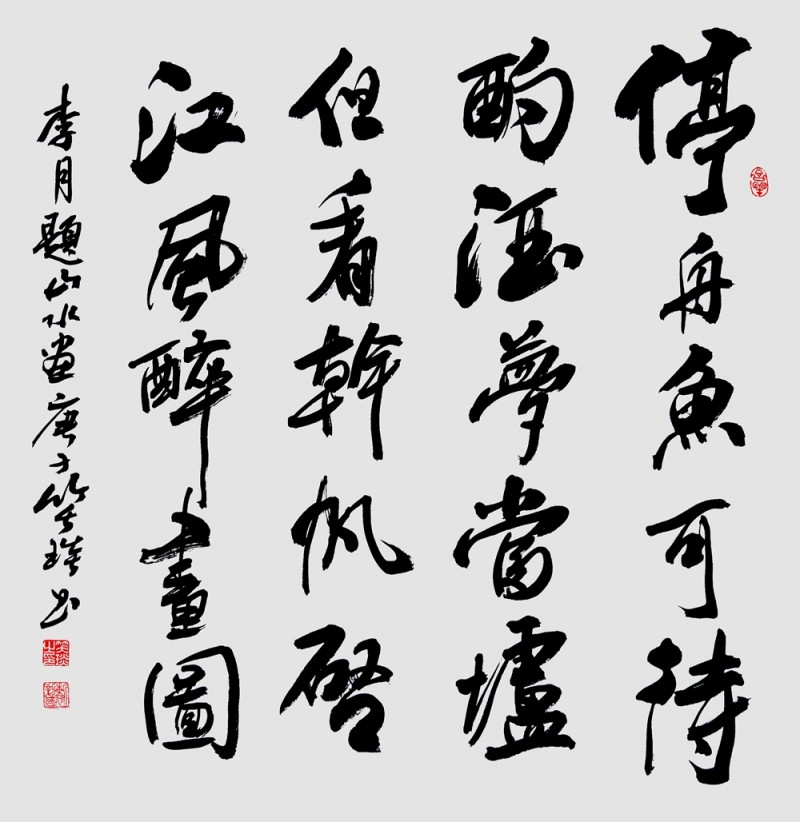 停舟魚可待
酌酒夢當壚
但看幹帆啓
江風醉畫圖
李月題山水畫庚子笑琰书